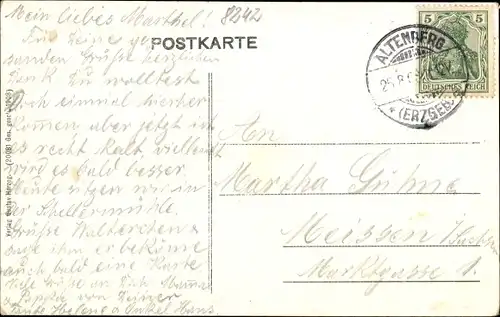 Mein liebes Marthel!
8242
Für Deine ge
sandten Grüße herzlichen
Dank Du wolltest
doch einmal hierher
komen, aber jetzt ist
es recht kalt vielleicht
wird es bald besser
Heute sitzen wir in
der Schellermühle.
Grüße Walterchen u
sage ihm er bekäme
auch bald eine Karte
Viele Grüße an Dich Mama
u Pappa von Deiner
Tante Helene u Onkel Hans.
POSTKARTE
5 5
DEUTSCHES REICH
ALTENBERG
25.8.
*(ERZGEB.)
An
Martha Gühne
Meissen Sachsen
Marktgasse 1.